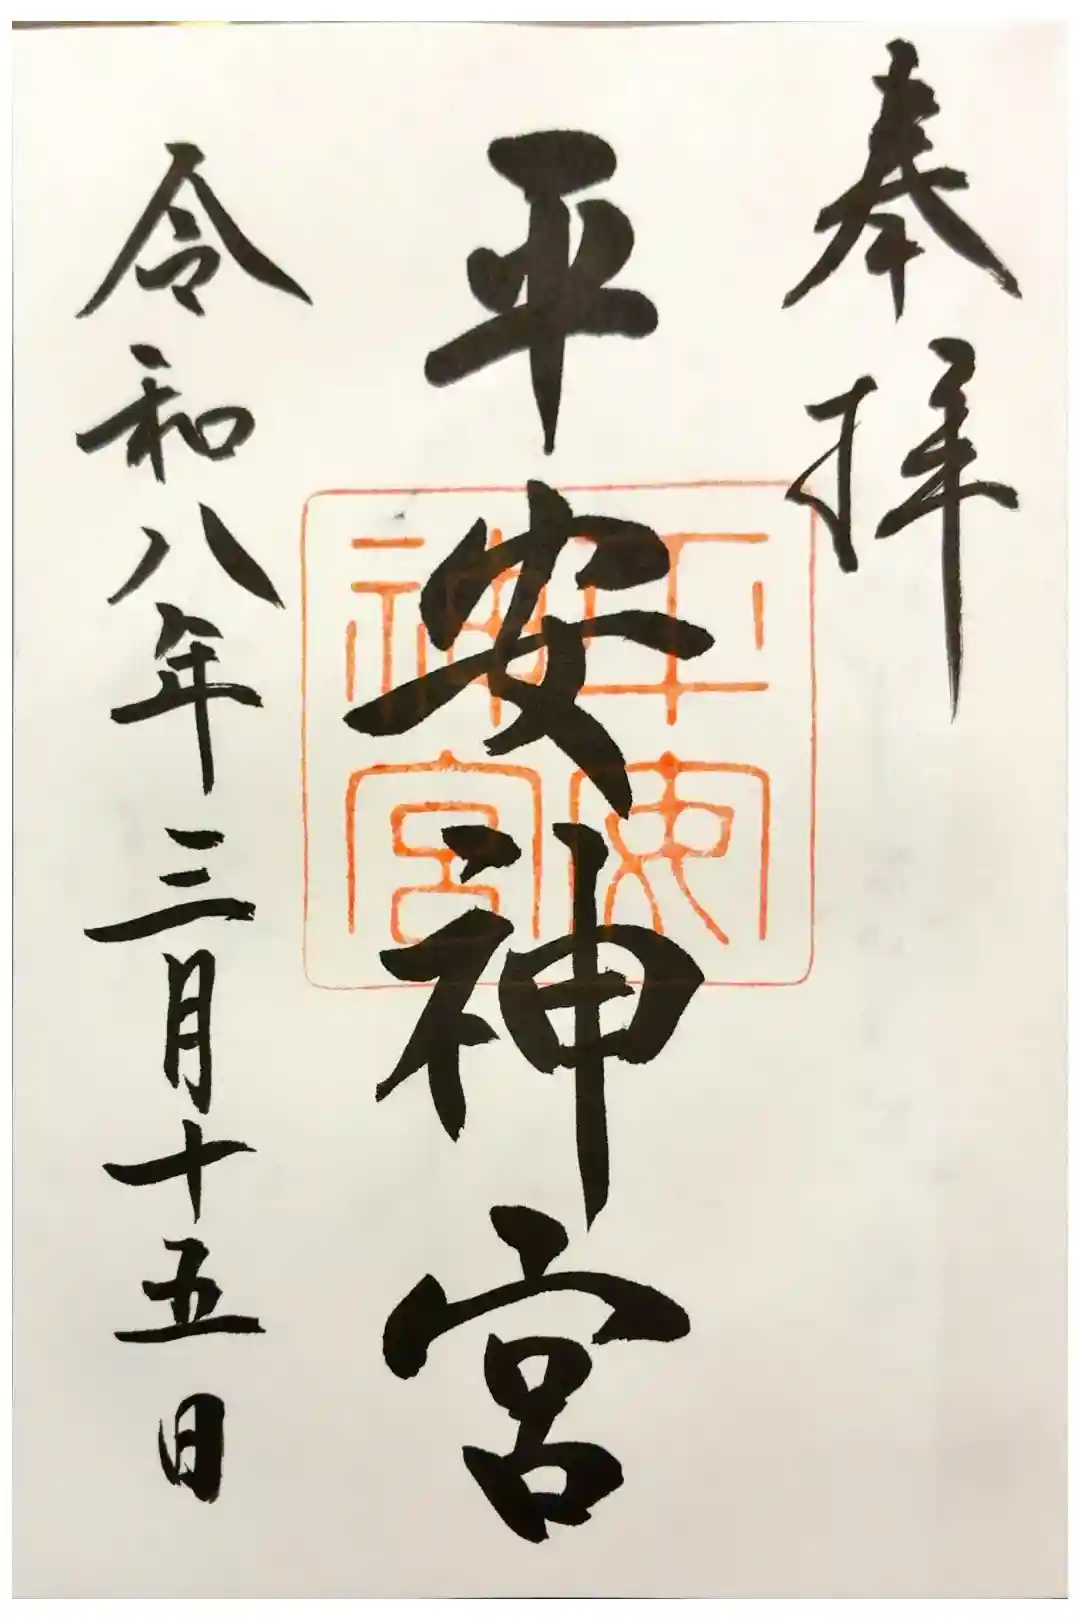 奉拝
平安神宮
平安神宮
令和八年三月十五日